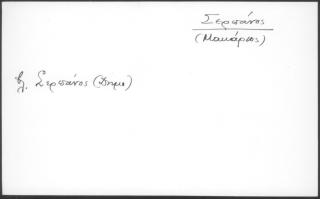 Σερπάνος
(Μακάριος)
βλ. Σερπάνος (Δημο)